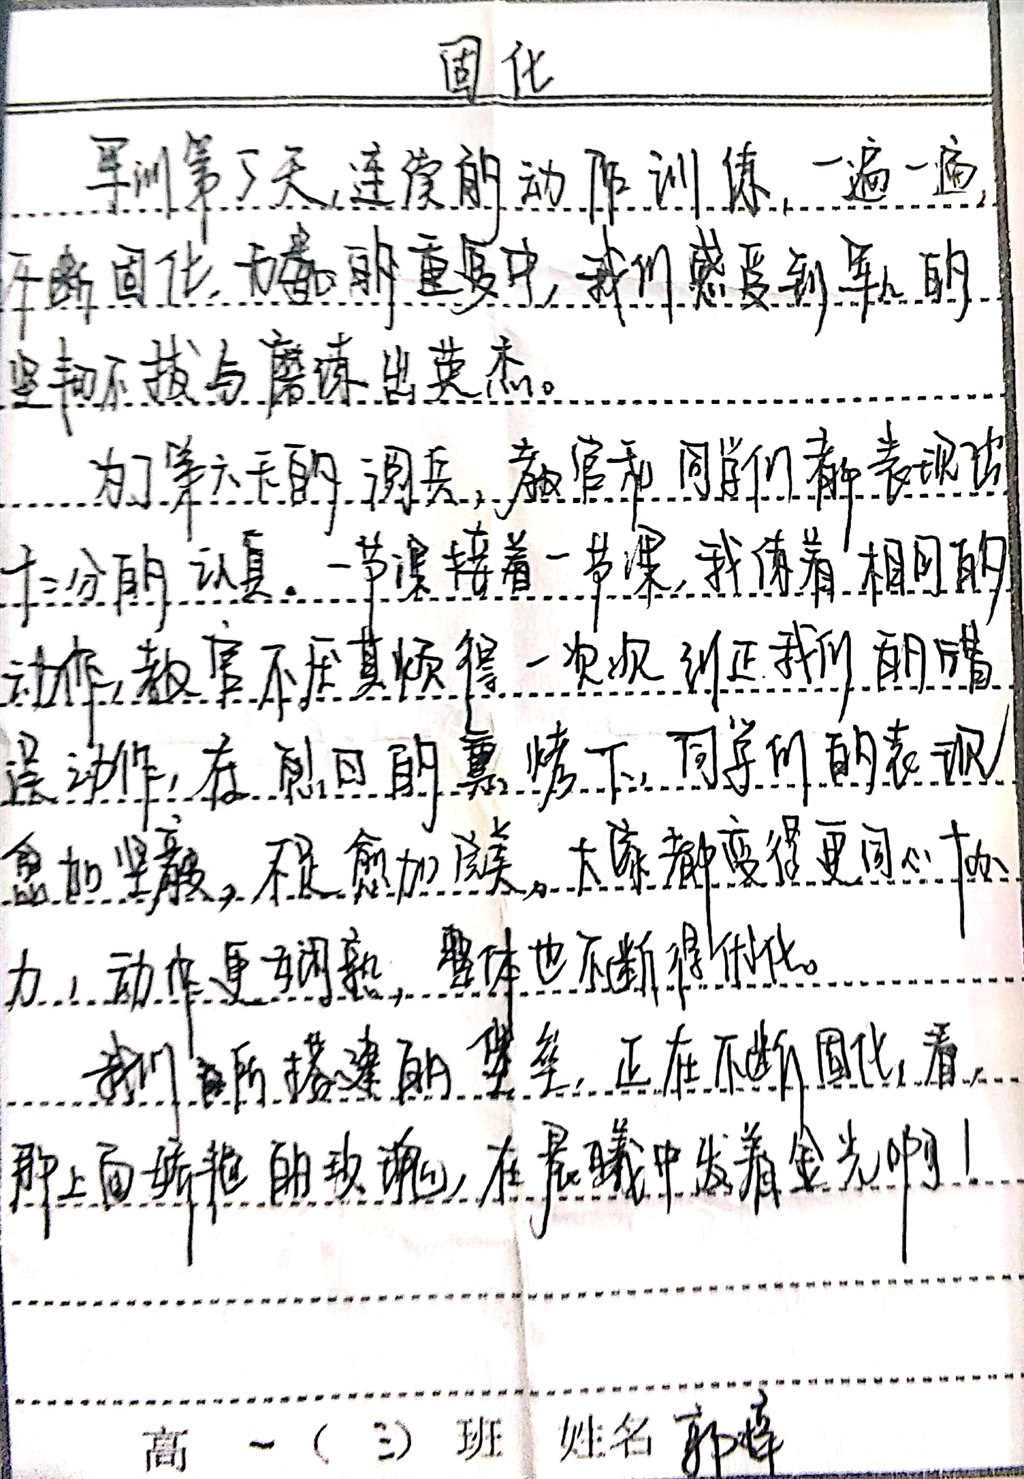 固化
军训第5天,连续的动作训练,一遍一遍,
不断固化,方的重复中,我们感受到军人的
坚韧不拔与磨练出英杰。
为了第六天的阅兵,教官和同学们都表现出
十二分的认真.一节课接着一节课,我练着相同的
动作,教官不厌其烦得一次次纠正我们的错
误动作,在烈日的熏烤下,同学们的表现
愈加坚毅,不足愈加完美,大家都变得更同心协
力,动作更娴熟,整体也不断得优化。
我们所搭建的堡垒,正在不断固化,看,
那上面的玫瑰,在晨曦中发着金光啊!
高一(三)班 姓名 郭